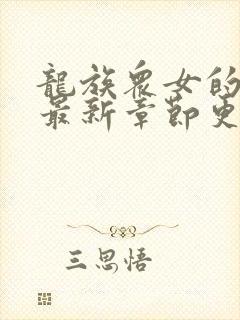 龍族眾女的
最新章節更
三思悟